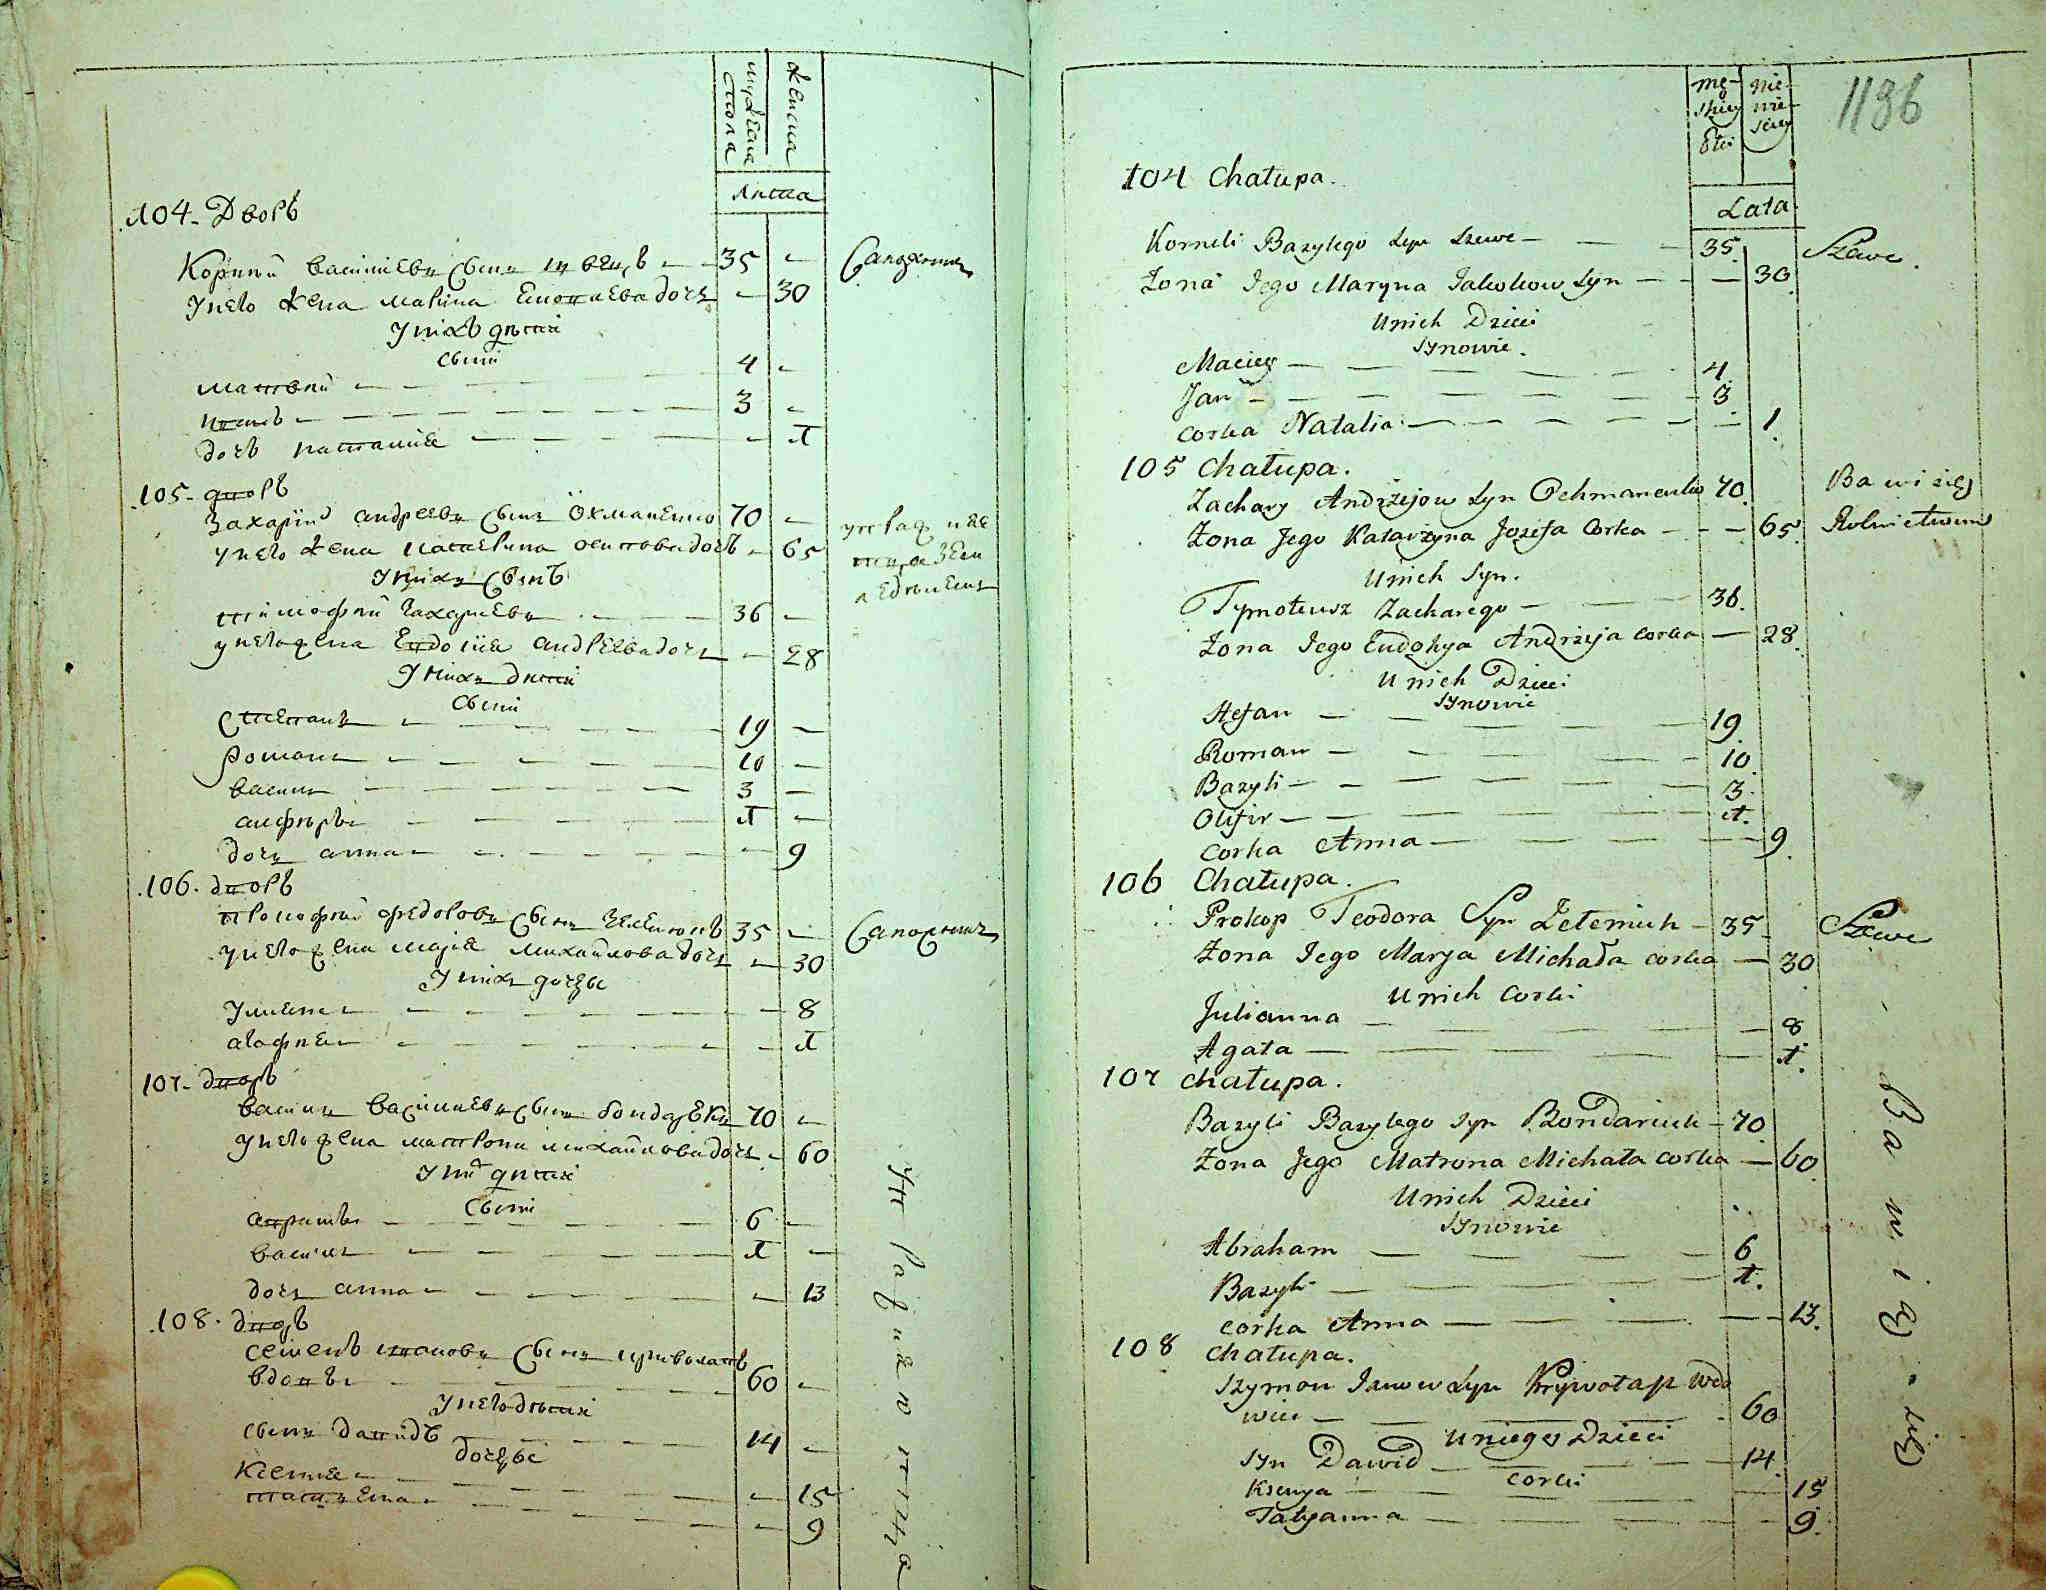 мужеска
пола
женска
Лѣта
104. Дворъ
Корнѣй васииліевъ сынъ швецъ — — 35 —
Унего жена марина дочъ — 30
Унихъ дѣти
сыни
матвѣй — — — — 4 —
иванъ — — — — 3 —
дочъ наталія — — — — 1
105. дворъ
Захарій андреевъ сынъ Охманенко 70 —
унего жена катерина осипова дочъ — 65
Унихъ сынъ
тимофѣй захаріевъ — — 36 —
унего жена Евдокія андреева дочъ — 28
Унихъ дѣти
сыни
Степанъ — — — — 19 —
романъ — — — — 10 —
василь — — — — 3 —
алиферъ — — — — 1 —
дочъ анна — — — — 9
106. дворъ
прокофій федоровъ сынъ 35 —
унего жена марія михайлова дочъ — 30
Унихъ дочеры
Уляна — — — — 8
агафия — — — — 1
107. дворъ
василь василиевъ сынъ бондарюкъ 70 —
Унего жена матрона михайлова дочъ — 60
Уних дѣти
сыни
аврамъ — — — — 6 —
василь — — — — 1 —
дочъ анна — — — — 13
108. дворъ
семенъ ивановъ сынъ криволапъ
вдовъ — — — — 60 —
Унего дѣти
сынъ давидъ — — — 14 —
дочеры
Ксенія — — — — 15
татияна — — — — 9
1196
mę-
skiey
Płci
nie-
wie-
sciey
Lata
104 Chałupa.
Korneli Bazylego Syn Szewc — — — 35. Szewc.
Zona Jego Maryna Jakobow Syn — — — 30.
U nich Dzieci
Synowie.
Maciey — — — — 4
Jan — — — — 3.
Corka Natalia — — — — 1.
105 Chałupa.
Zachary Andrzejow Syn Ochmanenko 70. Bawi się
Zona Jego Katarżyna Jozefa Corka — — — 65. Rolnictwem
U nich Syn.
Tymoteusz Zacharego — — — 36.
Zona Jego Eudokya Andrzeja Corka — 28.
U nich Dzieci
Synowie
Stefan — — — — 19.
Roman — — — — 10.
Bazyli — — — — 3.
Olifir — — — — 1.
Corka Anna — — — — 9.
106 Chałupa.
Prokop Teodora Syn Zeleniuk — 35. Szewc
Zona Jego Marya Michała Corka — 30.
U nich Corki
Julianna — — — — 8
Agata — — — — 1.
107 Chałupa.
Bazyli Bazylego Syn Bondariuk — 70
Zona Jego Matrona Michała Corka — 60.
U nich Dzieci
Synowie
Abraham — — — — 6
Bazyli — — — — 1.
Corka Anna — — — — 13.
108 Chałupa.
Szymon Janow Syn Krywołap Wdo
wiec — — — — 60
U niego Dzieci
Syn Dawid — — — — 14.
Corki
Ksenya — — — — 15
Tatyanna — — — — 9.
Bawią się